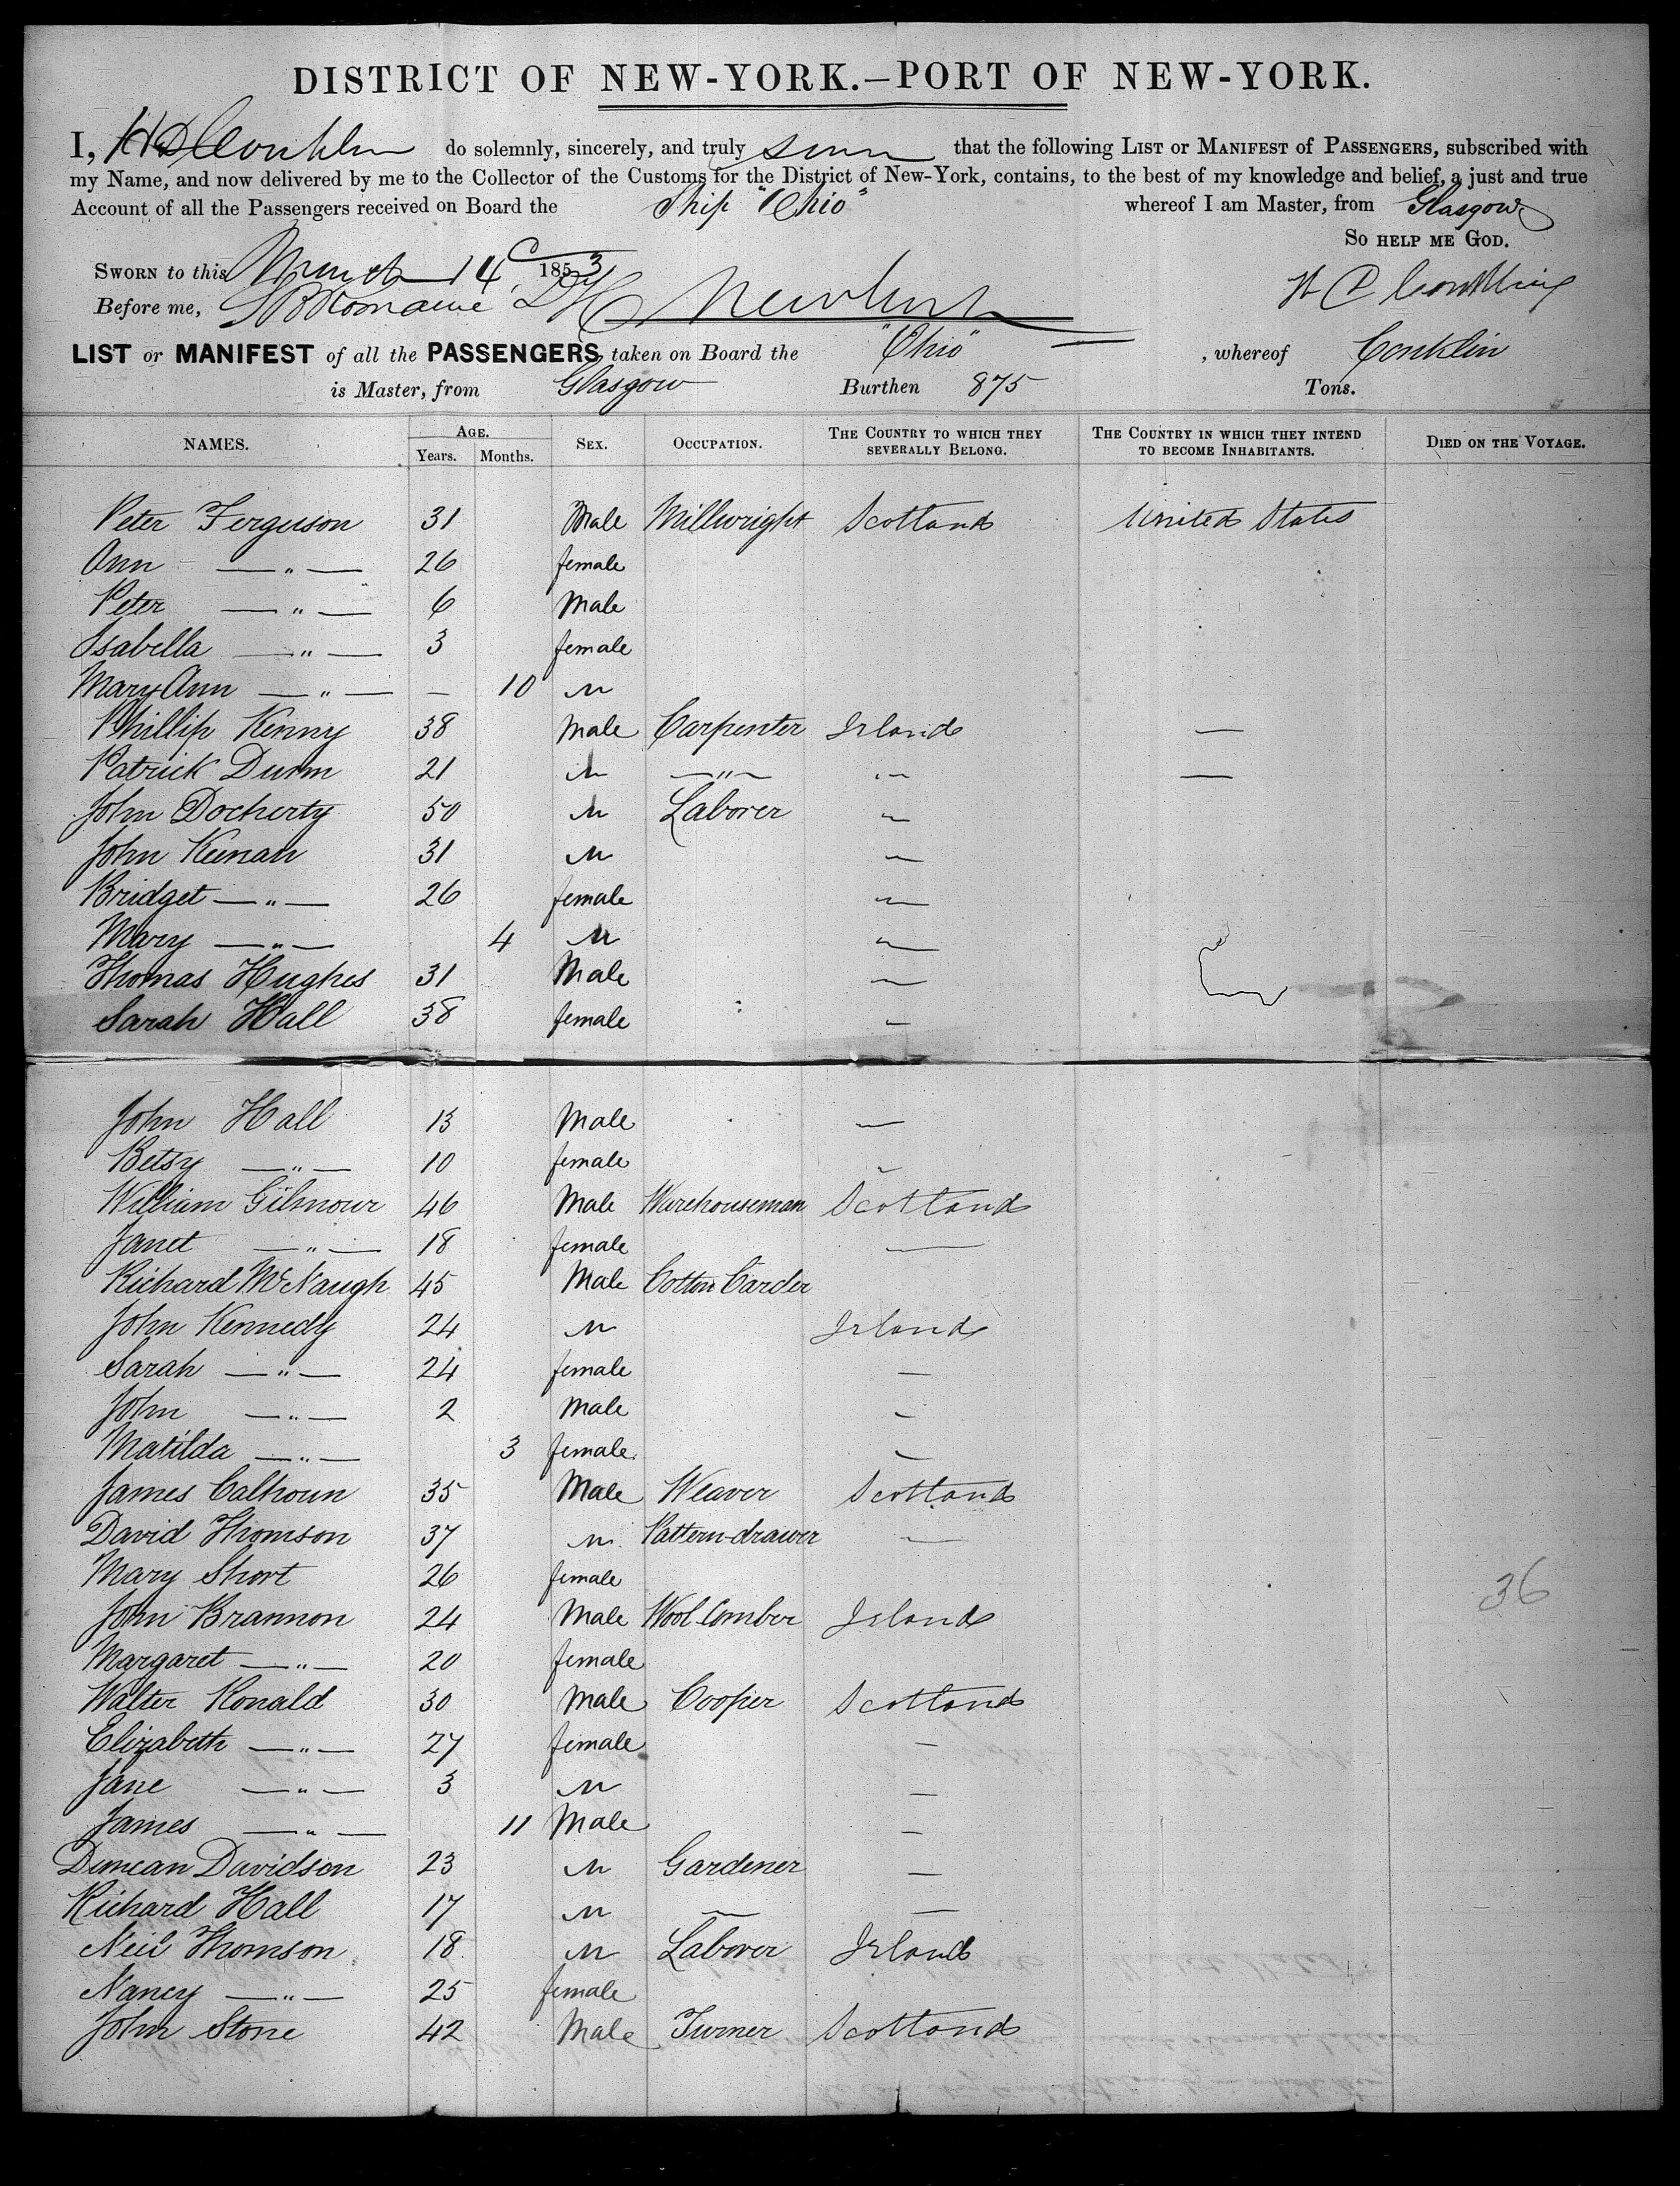 DISTRICT OF NEW-YORK.—PORT OF NEW-YORK.
I, do solemnly, sincerely, and truly that the following LIST OR MANIFEST of PASSENGERS, subscribed with
my Name, and now delivered by me to the Collector of the Customs for the District of New-York, contains, to the best of my knowledge and belief, a just and true
Account of all the Passengers received on Board the Ship "Ohio" whereof I am Master, from Glasgow
SO HELP ME GOD.
SWORN to this March 14 1853
Before me,
LIST or MANIFEST of all the PASSENGERS taken on Board the "Ohio", whereof Conklin
is Master, from Glasgow Burthen 875 Tons.
NAMES. AGE. Years. Months. SEX. OCCUPATION. THE COUNTRY TO WHICH THEY SEVERALLY BELONG. THE COUNTRY IN WHICH THEY INTEND TO BECOME INHABITANTS. DIED ON THE VOYAGE.
Peter Ferguson 31 Male Millwright Scotland United States
Ann —"— 26 female
Peter —"— 6 Male
Isabella —"— 3 female
Mary Ann —"— — 10 "
Phillip Kenny 38 Male Carpenter Irland —
Patrick Dunn 21 " —"— " —
John Docherty 50 " Laborer "
John Keenan 31 " "
Bridget —"— 26 female "
Mary —"— 4 " "
Thomas Hughes 31 Male "
Sarah Hall 38 female "
John Hall 13 Male —
Betsy —"— 10 female "
William Gilmour 46 Male Warehouseman Scotland
Janet —"— 18 female —
Richard McNaugh 45 Male Cotton Carder
John Kennedy 24 " Irland
Sarah —"— 24 female —
John —"— 2 Male "
Matilda —"— 3 female "
James Calhoun 35 Male Weaver Scotland
David Thomson 37 " Pattern-drawer —
Mary Short 26 female
John Brannon 24 Male Wool Comber Irland
Margaret —"— 20 female
Walter Ronald 30 Male Cooper Scotland
Elizabeth —"— 27 female —
Jane —"— 3 " —
James —"— 11 Male —
Duncan Davidson 23 " Gardener —
Richard Hall 17 " " —
Neil Thomson 18 " Laborer Irland
Nancy —"— 25 female
John Stone 42 Male Turner Scotland
36